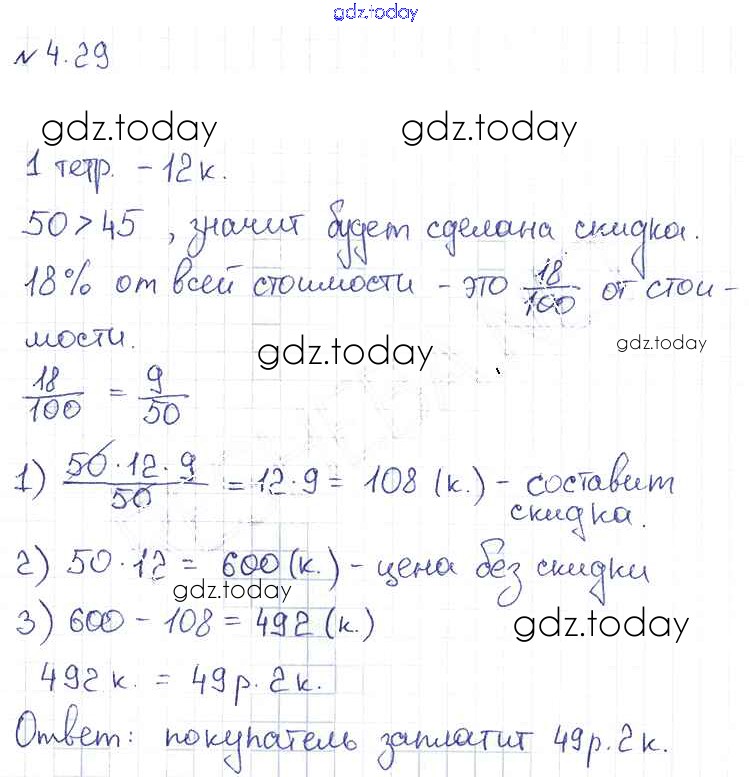 gdz.today
№ 4.29
gdz.today gdz.today
1 тетр. - 12 к.
50 > 45 , значит будет сделана скидка.
18% от всей стоимости - это 18/100 от стои-
мости.
gdz.today gdz.today
18/100 = 9/50
1) 50·12·9/50 = 12·9 = 108 (к.) - составит
скидка.
2) 50·12 = 600 (к.) - цена без скидки
gdz.today
3) 600 - 108 = 492 (к.)
gdz.today
492 к. = 49 р. 2 к.
Ответ: покупатель заплатит 49 р. 2 к.